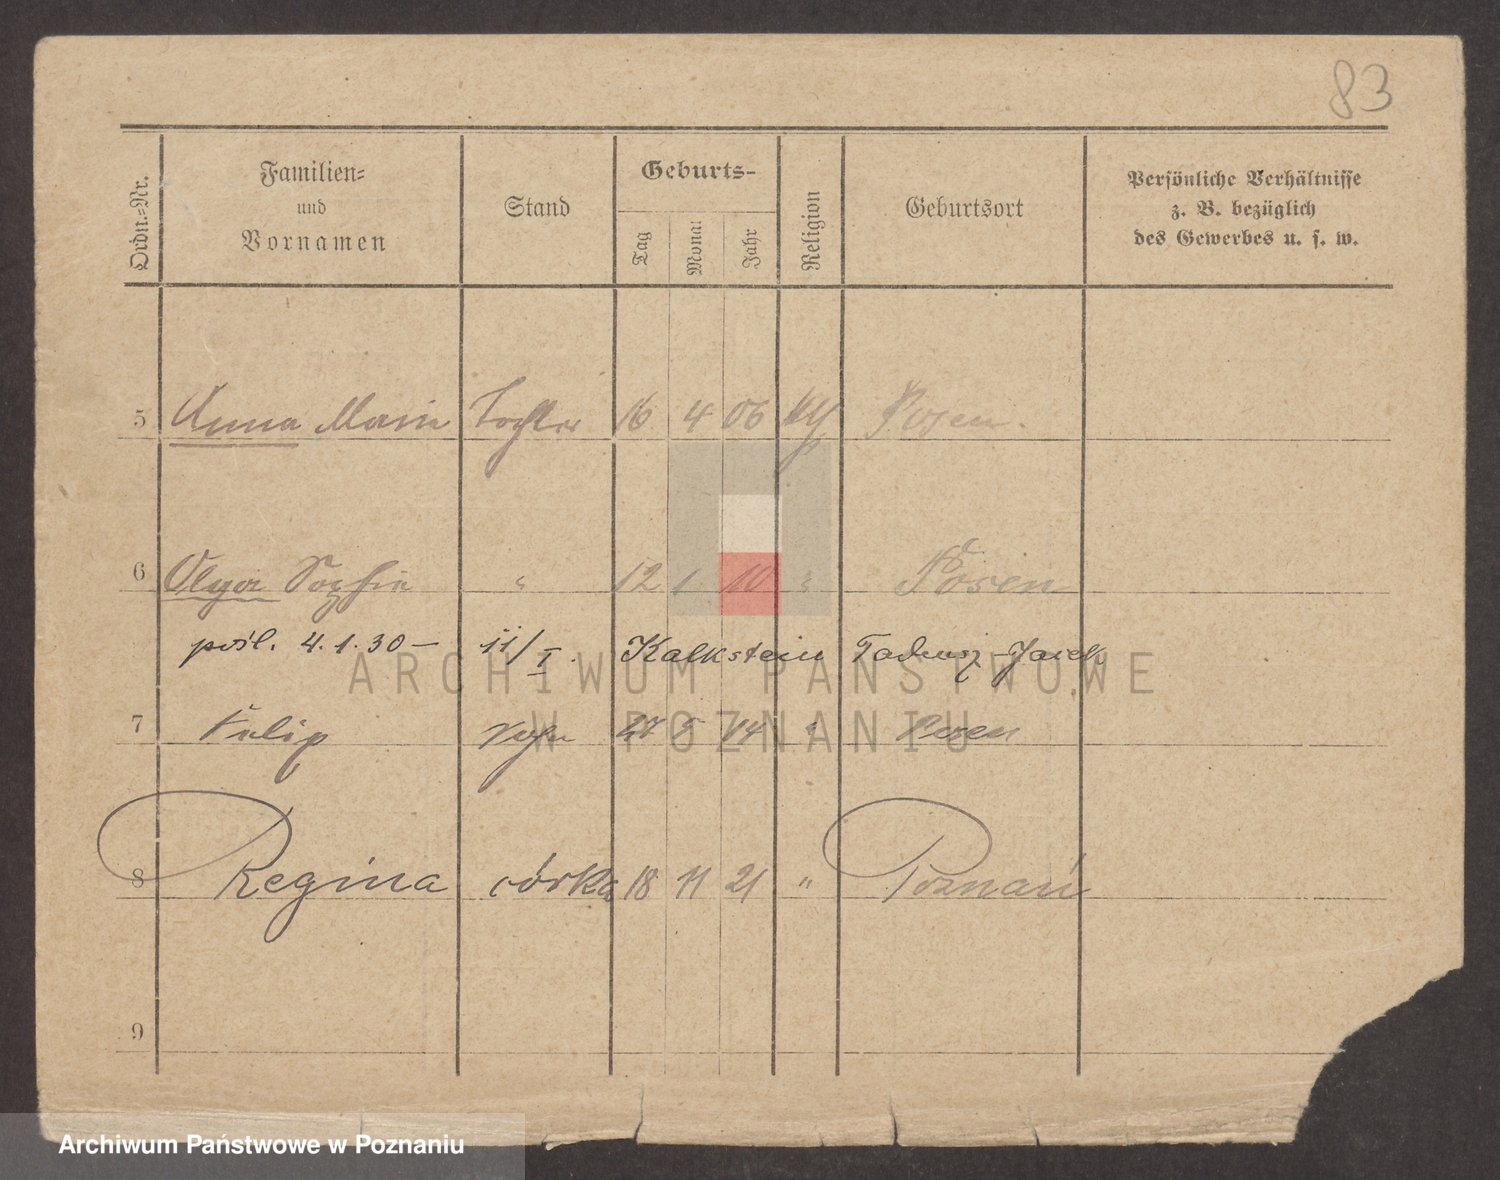 83
Ordn.-Nr. Familien- und Vornamen Stand Geburts- Tag Monat Jahr Religion Geburtsort Persönliche Verhältnisse z. B. bezüglich des Gewerbes u. s. w.
5 Anna Marie Tochter 16 4 06 Posen.
6 Olga Sophie " 12 1 10 " Posen
pośl. 4.1.30 – 11/I. Kalkstein Tadeusz-Jacek
7 Filip Sohn 27 5 14 " Posen
8 Regina córka 18 11 21 " Poznań
9
ARCHIWUM PAŃSTWOWE
W POZNANIU
Archiwum Państwowe w Poznaniu